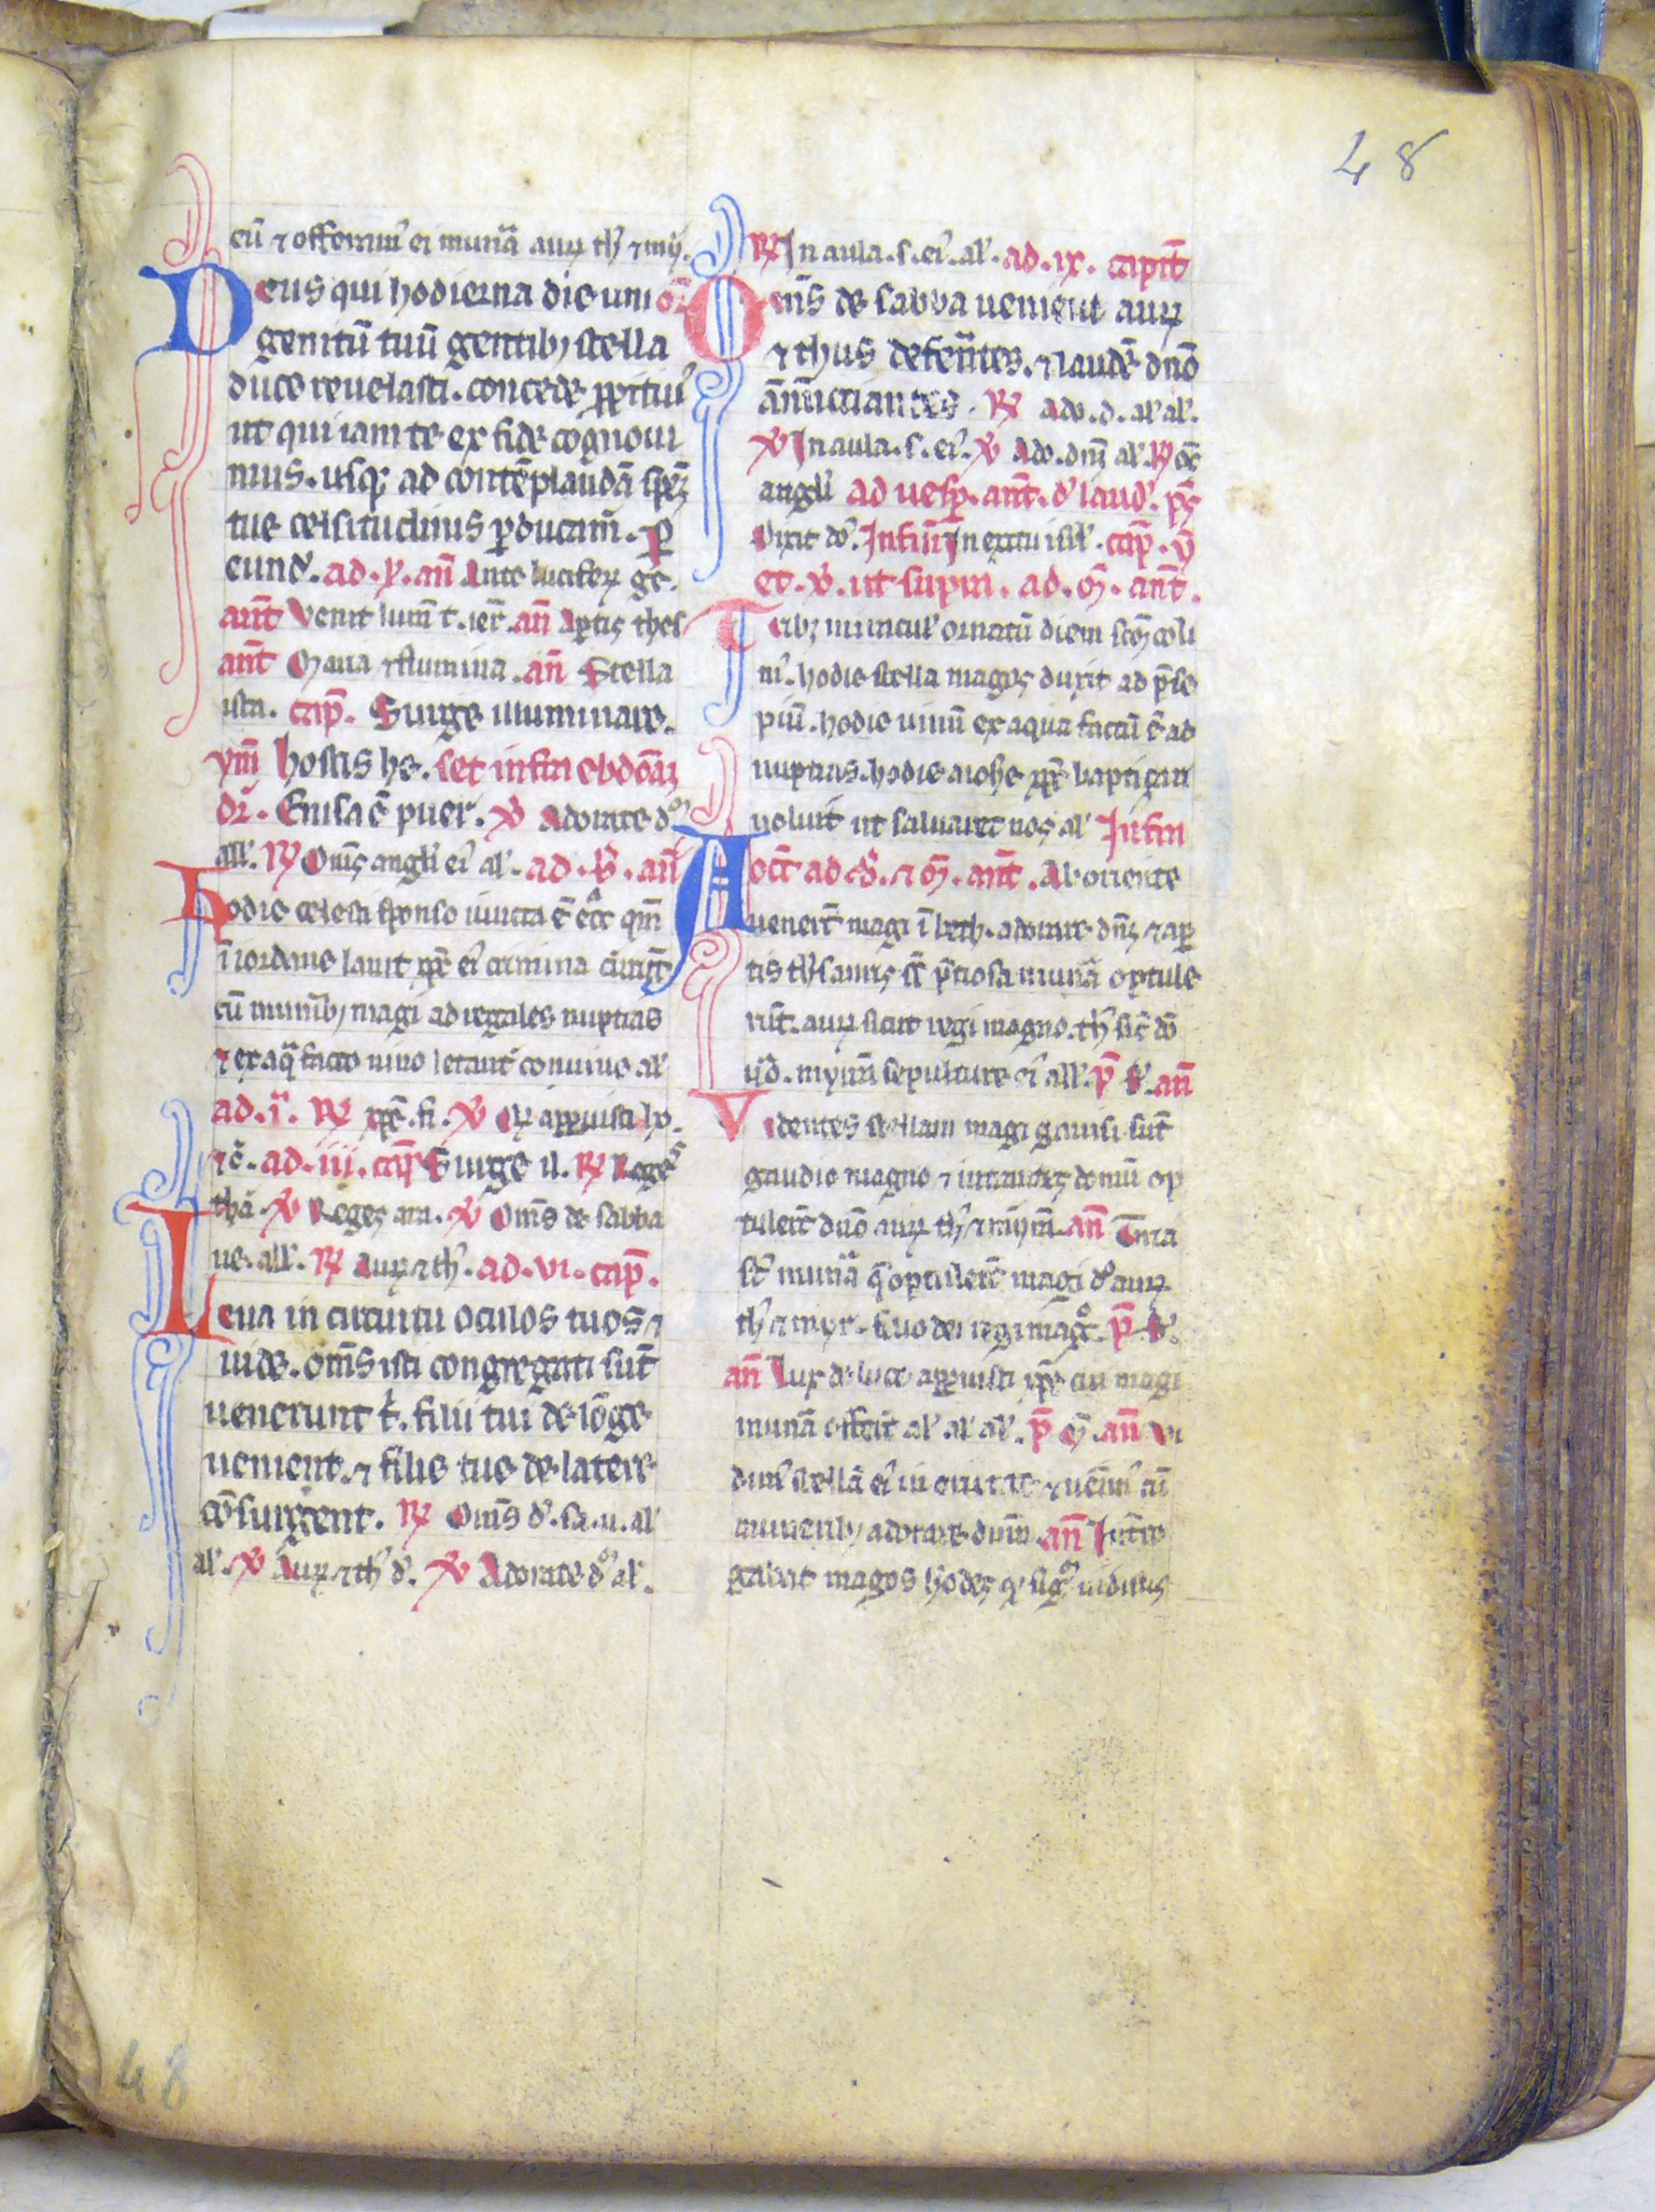 48
eũ ⁊ offerim᷒ ei munã auꝝ th᷒ ⁊ mir̃.
Deus qui hodierna die uni or̃
genitũ tuũ gentibꝫ stella
duce reuelasti. concede ꝓpitiu᷒
ut qui iam te ex fide cognoui
mus. usqꝫ ad contẽplandã spẽꝫ
tue celsitudinis ꝑducam̃. ꝑ
eund᷒. ad. p. añ Ante luciferꝝ ge.
anт̃ Venit lum̃ t. ier̃. añ Aꝑtis thes
anт̃ Maria ⁊ flumina. añ Stella
ista. cap̃. Surge illuminare.
ym̃ hostis he. set infra ebdõaꝫ
dr̃. Enisa ẽ puer. ℣ Adorate d᷒
all᷒. ℟ Oms̃ angli ei᷒ al᷒. ad. b̃. añ
Hodie celesti sponso iuncta ẽ ecc̃ qm̃
ĩ iordane lauit xp̃c ei᷒ crimina currũt
cũ munibꝫ magi ad regales nuptias
⁊ ex aq̃ facto uino letant᷒ conuiue al᷒
ad. i᷒. ℟ xp̃e. fi. ℣ Qͥ apparuisti ho.
⁊c̃. ad. iii. cap̃ Surge il. ℟ Reges
tha. ℣ Reges ara. ℣ Oms̃ de sabba
ue. all᷒. ℟ Auꝝ ⁊ th᷒. ad. vi. cap̃.
Leua in circuitu oculos tuos ⁊
uide. oms̃ isti congregati sũt
uenerunt t᷒. filii tui de lõge
uenient. ⁊ filie tue de latere
cõsurgent. ℟ Oms̃ d᷒. sa. u. al᷒
al᷒. ℣ Auꝝ ⁊ th᷒ d᷒. ℣ Adorate d᷒ al᷒.
℟ In aula. s. ei᷒. al᷒. ad. ix. capit̃
Oms̃ de sabba uenient auꝝ
⁊ thus deferñtes. ⁊ laudẽ dño
ãnũctiantes. ℟ Ado. d. al᷒ al᷒.
℣ In aula. s. ei᷒. ℣ Ado. dnm̃ al᷒. ℟ oẽs
angli᷒ ad uesp̃. ant̃. d᷒ laud᷒. ps̃
Dixit do᷒. In finẽ In exitu isrl᷒. cap̃. ỹ
et. ℣. ut supra. ad. m̃. ant̃.
Tribꝫ miracul᷒ ornatũ diem scm̃ coli
m᷒. hodie stella magos duxit ad p̃se
piũ. hodie uinũ ex aqua factũ ẽ ad
nuptias. hodie a iohe xp̃c baptizari
uoluit ut saluaret nos al᷒ Infra
oct̃ ad b̃. ⁊ m̃. ant̃. Ab oriente
uenerũt magi ĩ beth. adorare dñꝫ ⁊ aꝑ
tis thesauris s᷒ p̃tiosa munã optule
rũt. auꝝ sicut regi magno. th᷒ sic̃ dõ
ũo. myrrã sepulture ei᷒ all᷒. p̃ b᷒. añ
Videntes stellam magi gauisi sũt
gaudio magno ⁊ intrantes domũ op
tulerũt dño auꝝ th᷒ ⁊ mirrã. añ Tria
st᷒ munã q̃ optulerũt magi d᷒o auꝝ
th᷒ ⁊ myr. filio dei regi mag̊. p̃ b᷒.
añ Lux de luce apparuisti xp̃e cui magi
munã offerũt al᷒ al᷒ al᷒. p̃ m̃. añ Vi
dim᷒ stellã ei᷒ in oriente ⁊ uenim᷒ cũ
muneribꝫ adorare dnm̃. añ Int̃ro
gabat magos herodes qͥ signũ uidistis
48